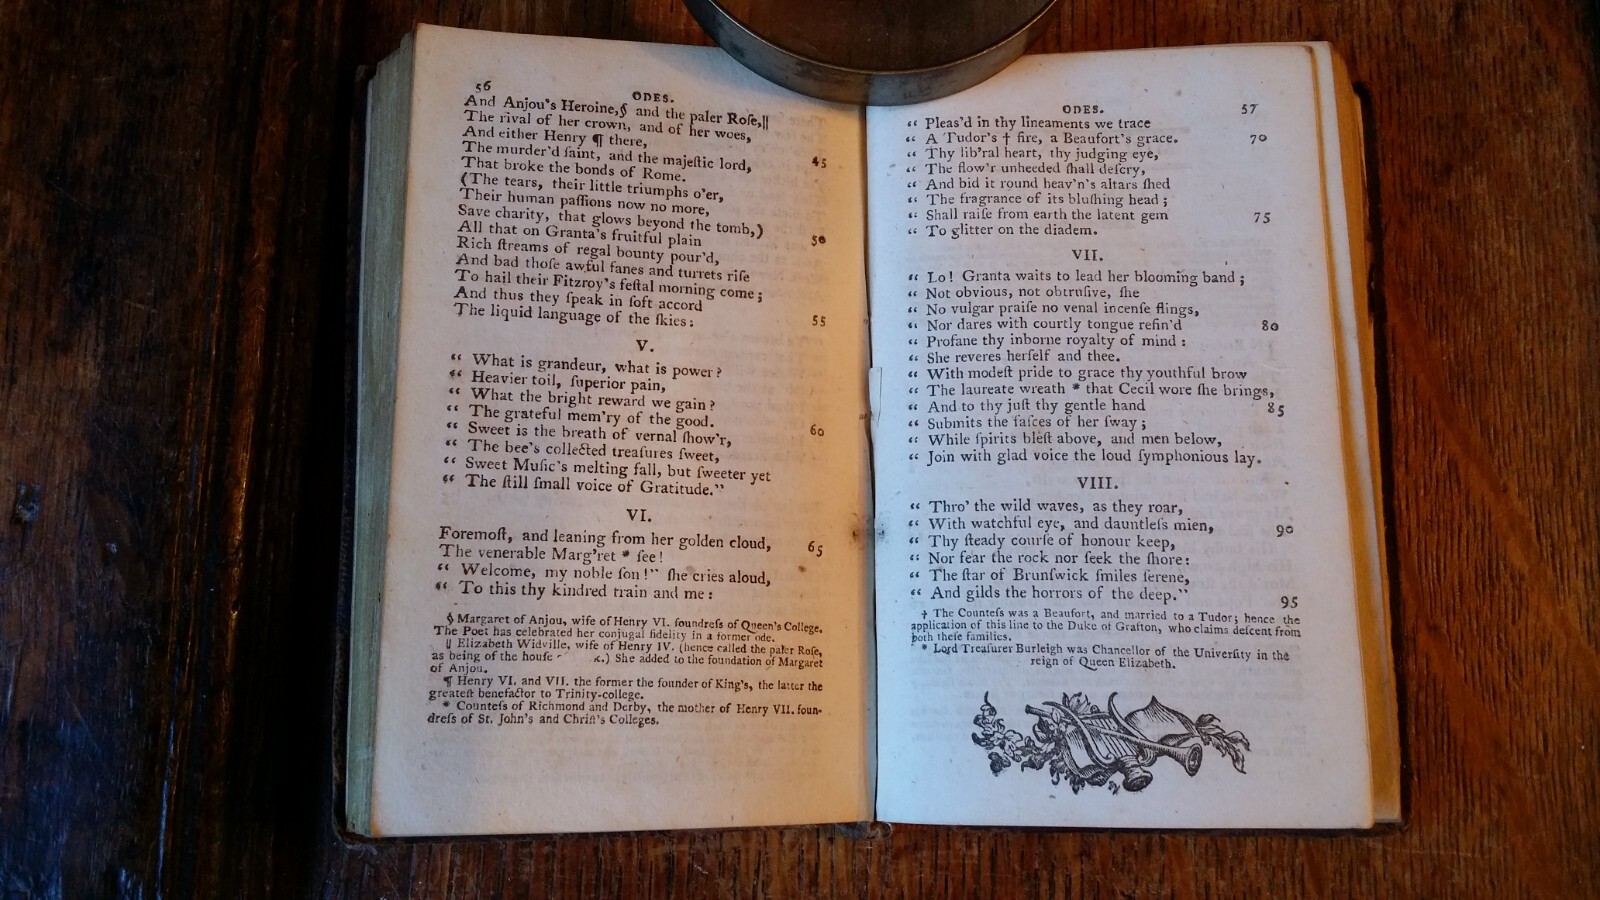 56
ODES.
And Anjou's Heroine,§ and the paler Roſe,||
The rival of her crown, and of her woes,
And either Henry ¶ there,
The murder'd ſaint, and the majeſtic lord, 45
That broke the bonds of Rome.
(The tears, their little triumphs o'er,
Their human paſſions now no more,
Save charity, that glows beyond the tomb,) 50
All that on Granta's fruitful plain
Rich ſtreams of regal bounty pour'd,
And bad thoſe awful fanes and turrets riſe
To hail their Fitzroy's feſtal morning come;
And thus they ſpeak in ſoft accord
The liquid language of the ſkies: 55
V.
“ What is grandeur, what is power?
“ Heavier toil, ſuperior pain,
“ What the bright reward we gain?
“ The grateful mem'ry of the good.
“ Sweet is the breath of vernal ſhow'r, 60
“ The bee's collected treaſures ſweet,
“ Sweet Muſic's melting fall, but ſweeter yet
“ The ſtill ſmall voice of Gratitude.”
VI.
Foremoſt, and leaning from her golden cloud, 65
The venerable Marg'ret * ſee!
“ Welcome, my noble ſon!” ſhe cries aloud,
“ To this thy kindred train and me:
§ Margaret of Anjou, wife of Henry VI. foundreſs of Queen's College.
The Poet has celebrated her conjugal fidelity in a former ode.
|| Elizabeth Widville, wife of Henry IV. (hence called the paler Roſe,
as being of the houſe .) She added to the foundation of Margaret
of Anjou.
¶ Henry VI. and VII. the former the founder of King's, the latter the
greateſt benefactor to Trinity-college.
* Counteſs of Richmond and Derby, the mother of Henry VII. foun-
dreſs of St. John's and Chriſt's Colleges.
ODES. 57
“ Pleas'd in thy lineaments we trace
“ A Tudor's † fire, a Beaufort's grace. 70
“ Thy lib'ral heart, thy judging eye,
“ The flow'r unheeded ſhall deſcry,
“ And bid it round heav'n's altars ſhed
“ The fragrance of its bluſhing head;
“ Shall raiſe from earth the latent gem 75
“ To glitter on the diadem.
VII.
“ Lo! Granta waits to lead her blooming band;
“ Not obvious, not obtruſive, ſhe
“ No vulgar praiſe no venal incenſe flings,
“ Nor dares with courtly tongue refin'd 80
“ Profane thy inborne royalty of mind:
“ She reveres herſelf and thee.
“ With modeſt pride to grace thy youthful brow
“ The laureate wreath * that Cecil wore ſhe brings,
“ And to thy juſt thy gentle hand 85
“ Submits the faſces of her ſway;
“ While ſpirits bleſt above, and men below,
“ Join with glad voice the loud ſymphonious lay.
VIII.
“ Thro' the wild waves, as they roar,
“ With watchful eye, and dauntleſs mien, 90
“ Thy ſteady courſe of honour keep,
“ Nor fear the rock nor ſeek the ſhore:
“ The ſtar of Brunſwick ſmiles ſerene,
“ And gilds the horrors of the deep.” 95
† The Counteſs was a Beaufort, and married to a Tudor; hence the
application of this line to the Duke of Grafton, who claims deſcent from
both theſe families.
* Lord Treaſurer Burleigh was Chancellor of the Univerſity in the
reign of Queen Elizabeth.